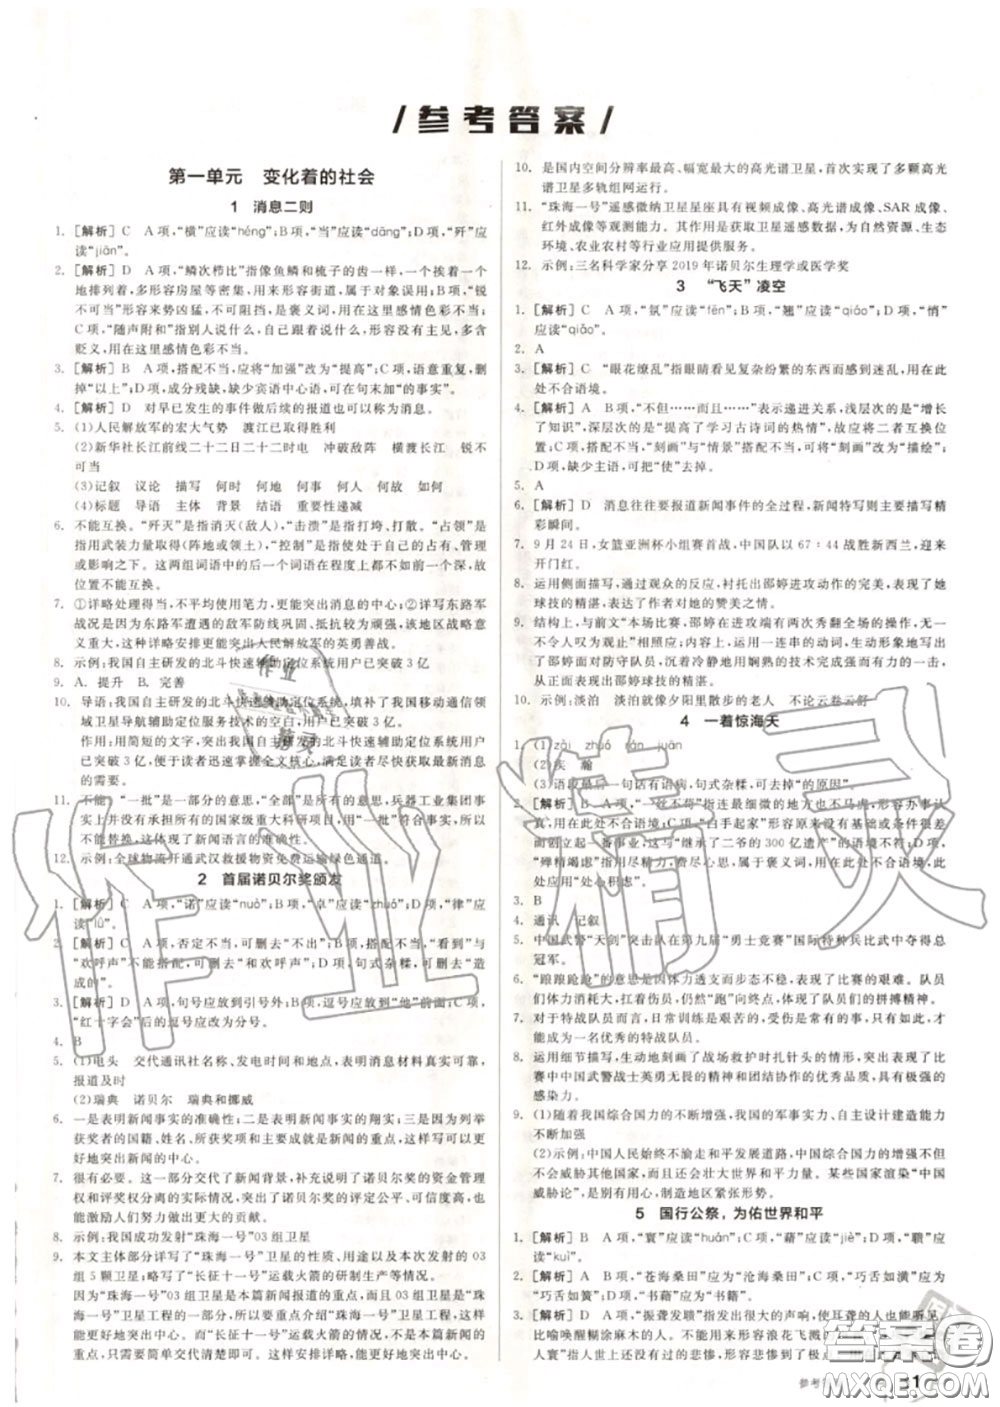 参考答案
第一单元 变化着的社会
1 消息二则
1. [解析] C A项,“横”应读“héng”;B项,“当”应读“dāng”;D项,“歼”应
读“jiān”。
2. [解析] D A项,“鳞次栉比”指像鱼鳞和梳子的齿一样,一个挨着一个
地排列着,多形容房屋等密集,用在这里形容街市,对象误用;B项,“锐
不可当”形容来势凶猛,不可阻挡,是褒义词,用在这里感情色彩不当;
C项,“随声附和”指别人说什么,自己跟着说什么,形容没有主见,多含
贬义,用在这里感情色彩不当。
3. [解析] B A项,搭配不当,应将“加强”改为“提高”;C项,语意重复,删
掉“以上”;D项,成分残缺,缺少宾语中心语,可在句末加“的事实”。
4. [解析] D 对早已发生的事件做后续的报道也可以称为消息。
5. (1)人民解放军的宏大气势 渡江已取得胜利
(2)新华社长江前线二十二日二十二时电 冲破敌阵 横渡长江 锐不
可当
(3)记叙 议论 描写 何时 何地 何事 何人 何故 如何
(4)标题 导语 主体 背景 结语 重要性递减
6. 不能互换。“歼灭”是指消灭(敌人),“击溃”是指打垮、打散。“占领”是
指用武装力量取得(阵地或领土),“控制”是指使处于自己的占有、管理
或影响之下。这两组词语中的前一个词语在程度上都比后一个深,故
位置不能互换。
7. ①详略处理得当,这样处理,更能突出消息的中心;②详写东路军战
况,是因为东路军遭遇的敌军防线巩固、抵抗较为顽强,该地区战略意
义重大;这种详略安排更能突出人民解放军的英勇善战。
8. 示例:我国自主研发的北斗快速辅助定位系统用户已突破3亿
9. A. 提升 B. 完善
10. 导语:我国自主研发的北斗快速辅助定位系统,填补了我国移动通信领
域卫星导航辅助定位服务技术的空白,用户已突破3亿。
作用:用简短的文字,突出我国自主研发的北斗快速辅助定位系统用户已
突破3亿,便于读者迅速掌握全文核心,满足读者尽快了解最新消息
的需要。
11. 不能。“一批”是一部分的意思,“全部”是所有的意思,兵器工业集团事
实上并没有承担所有的国家级重大科研项目,用“一批”符合事实,如
替换,这体现了新闻语言的准确性。
12. 示例:全球物流开通武汉救援物资免费运输绿色通道。
2 首届诺贝尔奖颁发
1. [解析] C A项,“诺”应读“nuò”;B项,“卓”应读“zhuó”;D项,“律”应
读“lǜ”。
2. [解析] C A项,否定不当,可删去“不出”;B项,搭配不当,“看到”与
“欢呼声”不能搭配,可删去“和欢呼声”;D项,句式杂糅,可删去“造
成的”。
3. [解析] D A项,句号应放到引号外;B项,逗号应放到“他”前面;C项,
“红十字会”后的逗号应改为分号。
4. B
5. (1)电头 交代通讯社名称、发电时间和地点,表明消息材料真实可靠,
报道及时
(2)瑞典 诺贝尔 瑞典和挪威
6. 一是表明新闻事实的准确性;二是表明新闻事实的翔实;三是因为列举
获奖者的国籍、姓名、所获奖项就是该新闻的重点,这样写可以更好地
突出新闻的中心。
7. 很有必要。这一部分交代了新闻背景,补充说明了诺贝尔奖的资金管理
权和评奖权分离的实际情况,突出了诺贝尔奖的评定公平、可信度高,也
能激励人们为世界做出更大的贡献。
8. 示例:我国成功发射“珠海一号”03组卫星
9. 本文主体部分详写了“珠海一号”卫星的性质、用途以及本次发射的03
组5颗卫星;略写了“长征十一号”运载火箭的研制生产等情况。
因为“珠海一号”03组卫星是本篇新闻的主要内容和重点,详细描写
“珠海一号”卫星工程,能突出新闻的重点,更好地突出新闻的中心。而
“长征十一号”运载火箭虽然也属于“珠海一号”卫星工程,但不是本篇新
闻的重点,只需要简单交代清楚即可,这样安排详略,突出了本篇新闻的
中心。
10. 是国内空间分辨率最高、幅宽最大的高光谱卫星,首次实现了多颗高光
谱卫星多轨组网运行。
11. “珠海一号”遥感微纳卫星星座具有视频成像、高光谱成像、SAR成像、
红外成像等多种成像功能。其作用是获取卫星遥感数据,为自然、生态
环境、农业农村等行业应用提供服务。
12. 示例:三名科学家分享2019年诺贝尔生理学或医学奖
3 “飞天”凌空
1. [解析] C A项,“氛”应读“fēn”;B项,“翘”应读“qiáo”;D项,“悄”
应读“qiǎo”。
2. A
3. [解析] C “眼花缭乱”指眼睛看见复杂纷繁的东西而感到迷乱,用在
此处不合语境。
4. [解析] A B项,“不但……而且……”表示递进关系,浅层次的是“增长了
知识”,深层次的是“提高了学习古诗词的热情”,应将二者互换位置;
C项,搭配不当,“刻画”与“情景”搭配不当,可将“刻画”改为“描绘”;
D项,缺少主语,可把“使”去掉。
5. A
6. [解析] D 消息往往要报道新闻事件的全过程,新闻特写则主要描写
精彩瞬间。
7. 9月24日,女篮亚洲杯小组赛首战,中国队以67∶44战胜新西兰,迎来
开门红。
8. 运用侧面描写,通过观众的反应,衬托出邵婷进攻动作的完美,表现了她
球技的精湛,表达了作者对她的赞美之情。
9. 结构上,与前文“本场比赛,邵婷在进攻端有两次秀翻全场的操作,无一不
令人叹为观止”相照应;内容上,运用一连串的动词,生动形象地写出了
邵婷面对防守队员,沉着冷静地用娴熟的技术带球进攻得分的情景,
从正面表现出邵婷球技的精湛。
10. 示例:淡泊 淡泊就像夕阳里散步的老人 不论云卷云舒
4 一着惊海天
1. (1)zài zhuó rán juān
(2)疾 瀚
(3)语段最后一句话有语病,句式杂糅,可去掉“的原因”。
2. [解析]
3. B
4. 通讯 记叙
5. 中国武警“天剑”突击队在第九届“勇士竞赛”国际特种兵比武中夺得总
冠军。
6. “踉踉跄跄”的意思是因体力透支而步态不稳,表现了比赛的艰难。队员
们体力消耗大,扛着装备,仍然“跑”向终点,表现了队员们的拼搏精神。
7. 对于特战队员而言,日常训练是艰苦的,受伤也是不可避免的,这样才
能成为一名优秀的特战队员。
8. 运用细节描写,通过描写官兵实践了战场救护时扎针头的情节,突出了比
赛中中国武警战士英勇无畏的精神和团结协作的优秀品质,具有强烈的
感染力。
9. (1)示例:随着我国综合国力的不断增强,我国的军事实力、自主设计建造能力
不断增强。
(2)示例:中国人民始终不渝走和平发展道路,中国综合国力的增强非但不
会影响其他国家,相反还会壮大世界和平力量。某些国家渲染“中国
威胁论”,是别有用心,制造地区紧张形势。
5 国行公祭,为佑世界和平
1. [解析] B A项,“寰”应读“huán”;C项,“藉”应读“jiè”;D项,“聩”应
读“kuì”。
2. [解析] B A项,“苍海桑田”应为“沧海桑田”;C项,“巧舌如潢”应为
“巧舌如簧”;D项,“书藉”应为“书籍”。
3. [解析] D A项,“振聋发聩”指发出很大的声音,使耳聋的人也能听见,
比喻唤醒糊涂麻木的人,不能用来形容浪花飞溅的
人寰”指人世上还没有过的悲惨,形容悲惨到了极点
答案圈
MXQE.COM
作业精灵
1